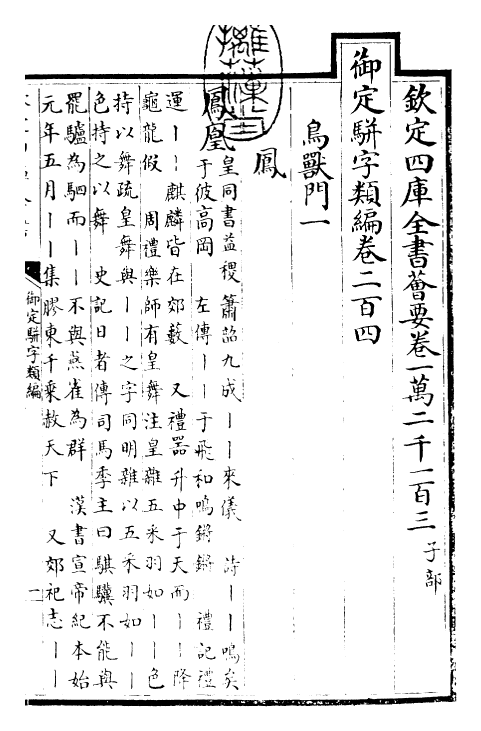 欽定四庫全書薈要卷一萬二千一百三 子部
御定駢字類編卷二百四
鳥獸門一
鳳
鳳凰 皇同書益稷簫韶九成丨丨來儀 詩丨丨鳴矣
于彼高岡 左傳丨丨于飛和鳴鏘鏘 禮記禮
運丨丨麒麟皆在郊藪 又禮器升中于天而丨丨降
龜龍假 周禮樂師有皇舞注皇雜五采羽如丨丨色
持以舞疏皇舞與丨丨之字同明雜以五采羽如丨丨
色持之以舞 史記日者傳司馬季主曰騏驥不能與
罷驢為駟而丨丨不與燕雀為群 漢書宣帝紀本始
元年五月丨丨集膠東千乘赦天下 又郊祀志丨丨
御定駢字類編